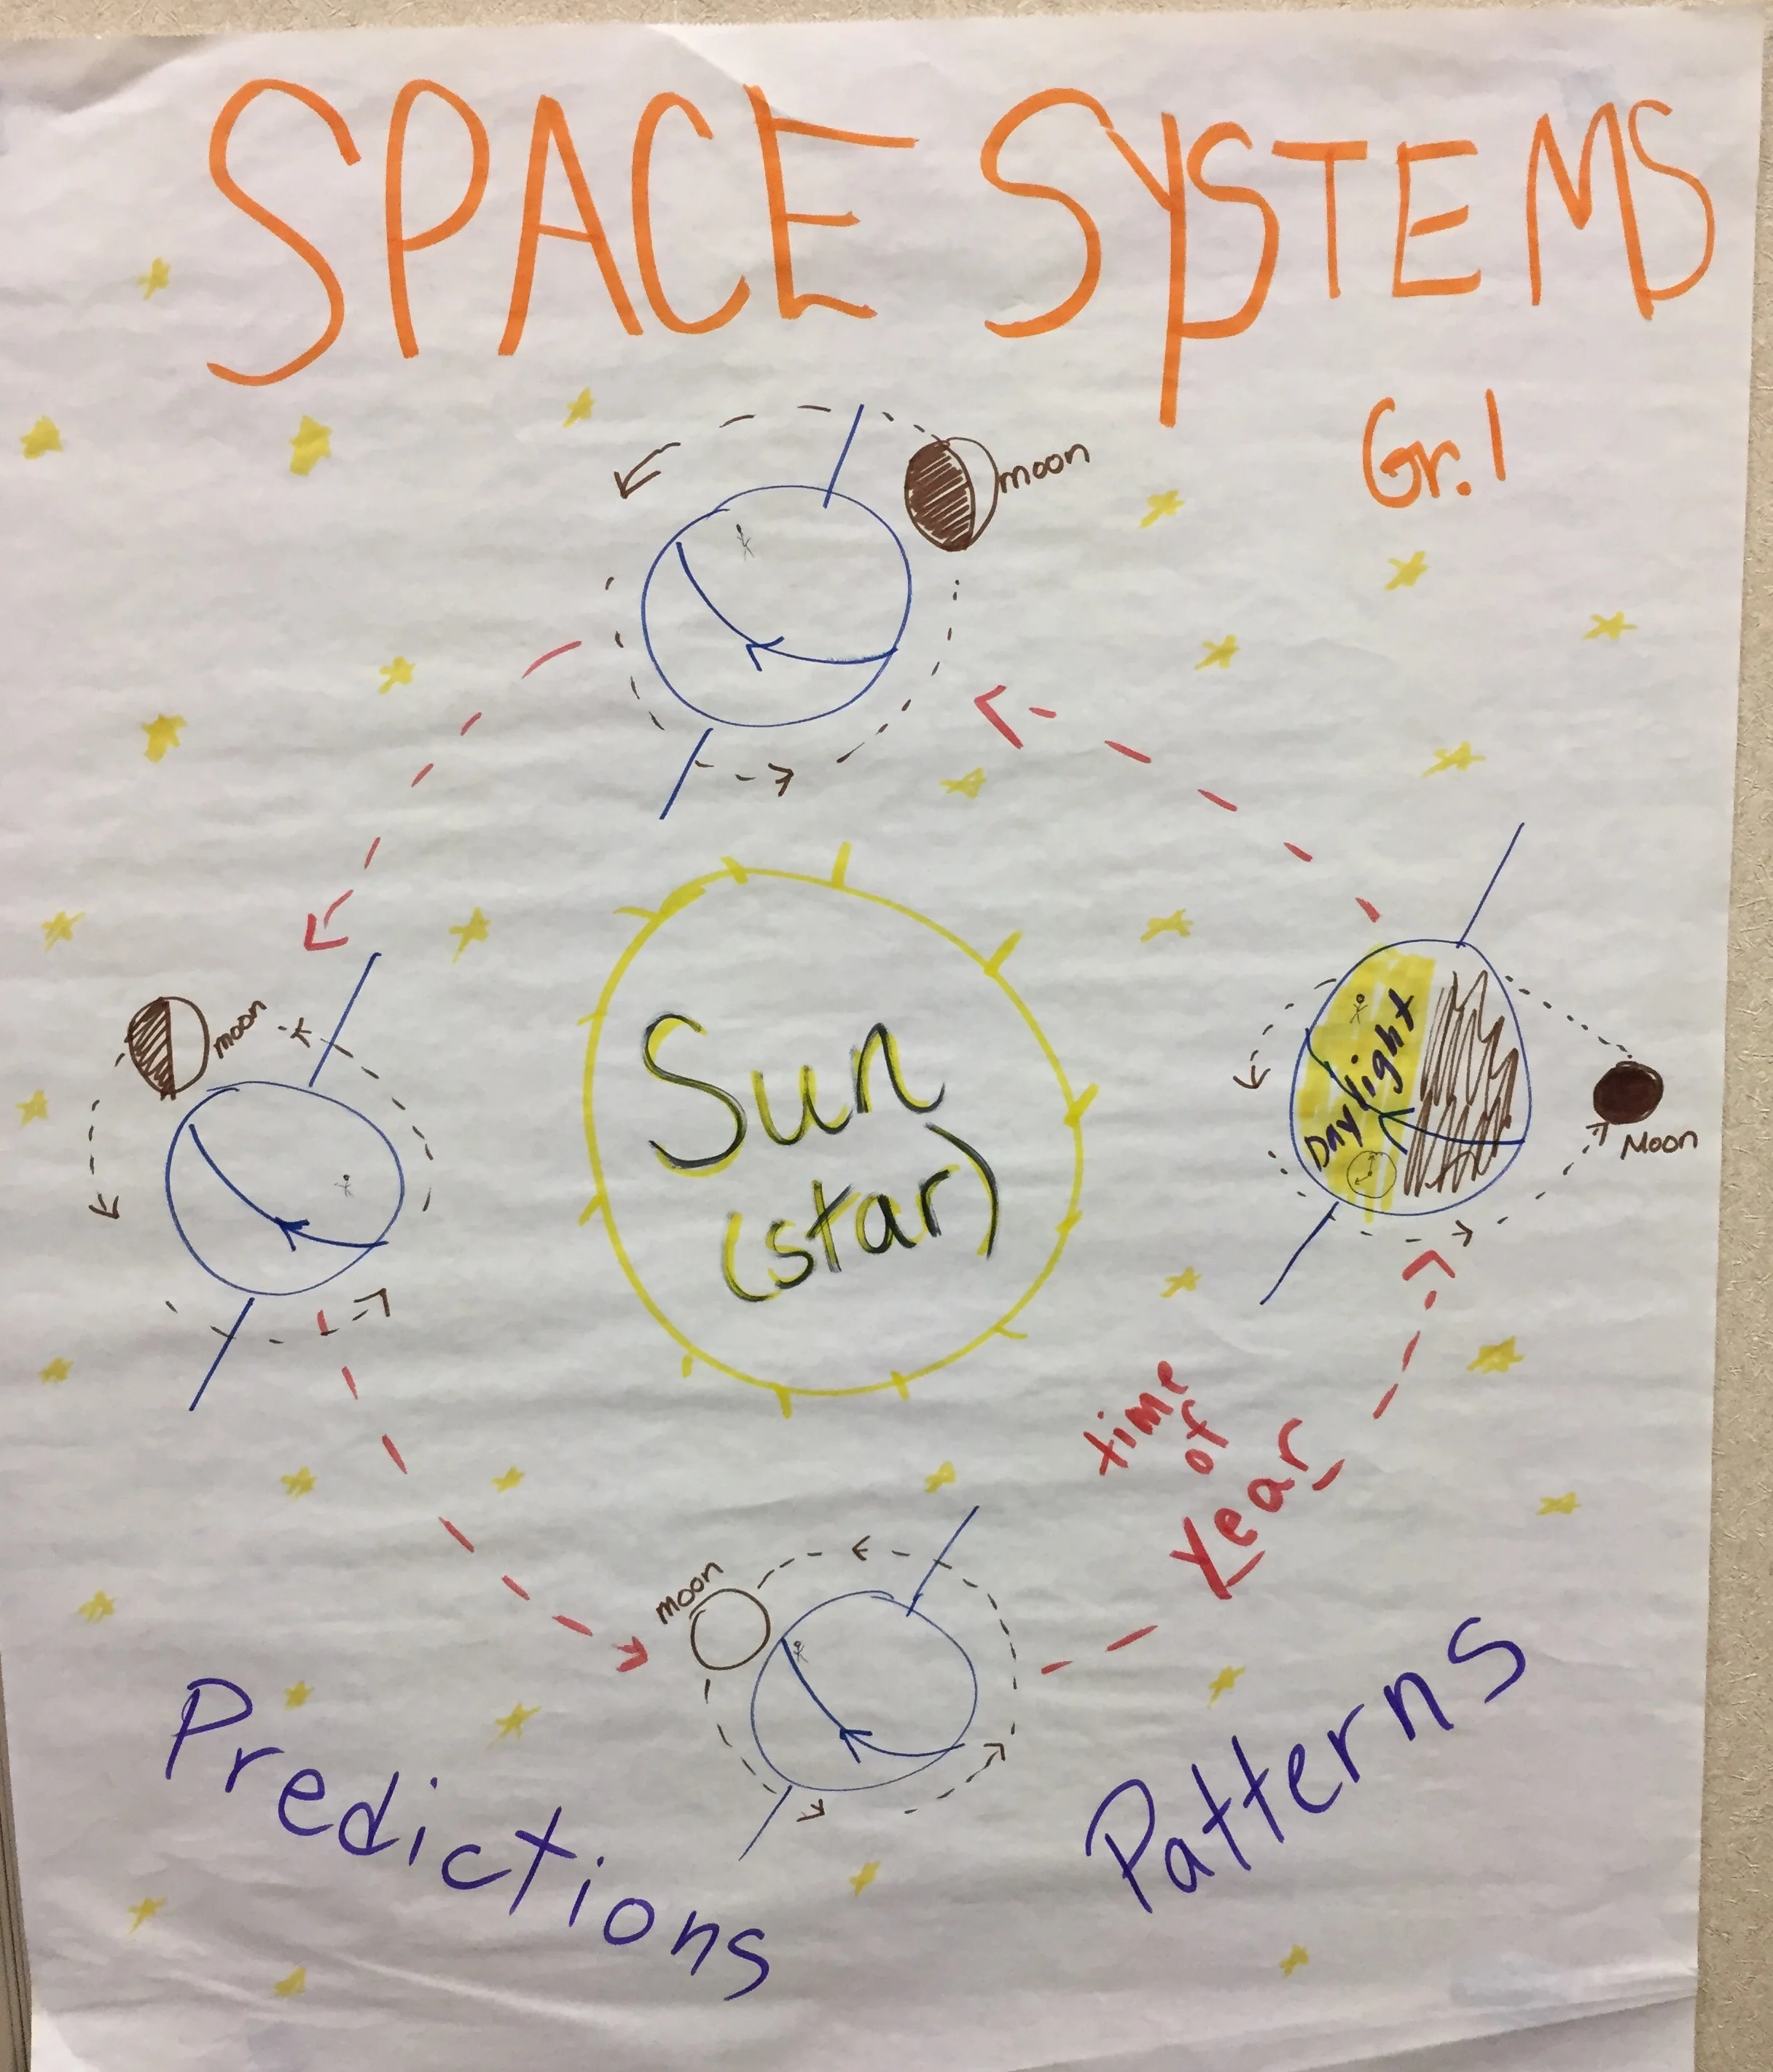 SPACE SYSTEMS
Gr. 1
moon
moon
Sun
(star)
Daylight
Moon
time
of
Year
moon
Predictions
Patterns